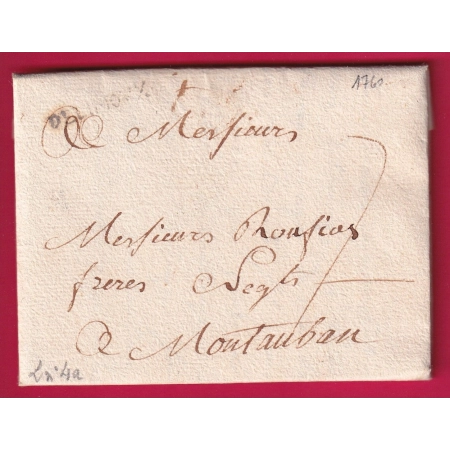 1760
A Messieurs
Messieurs
freres Negts
A Montauban
L n° 4a